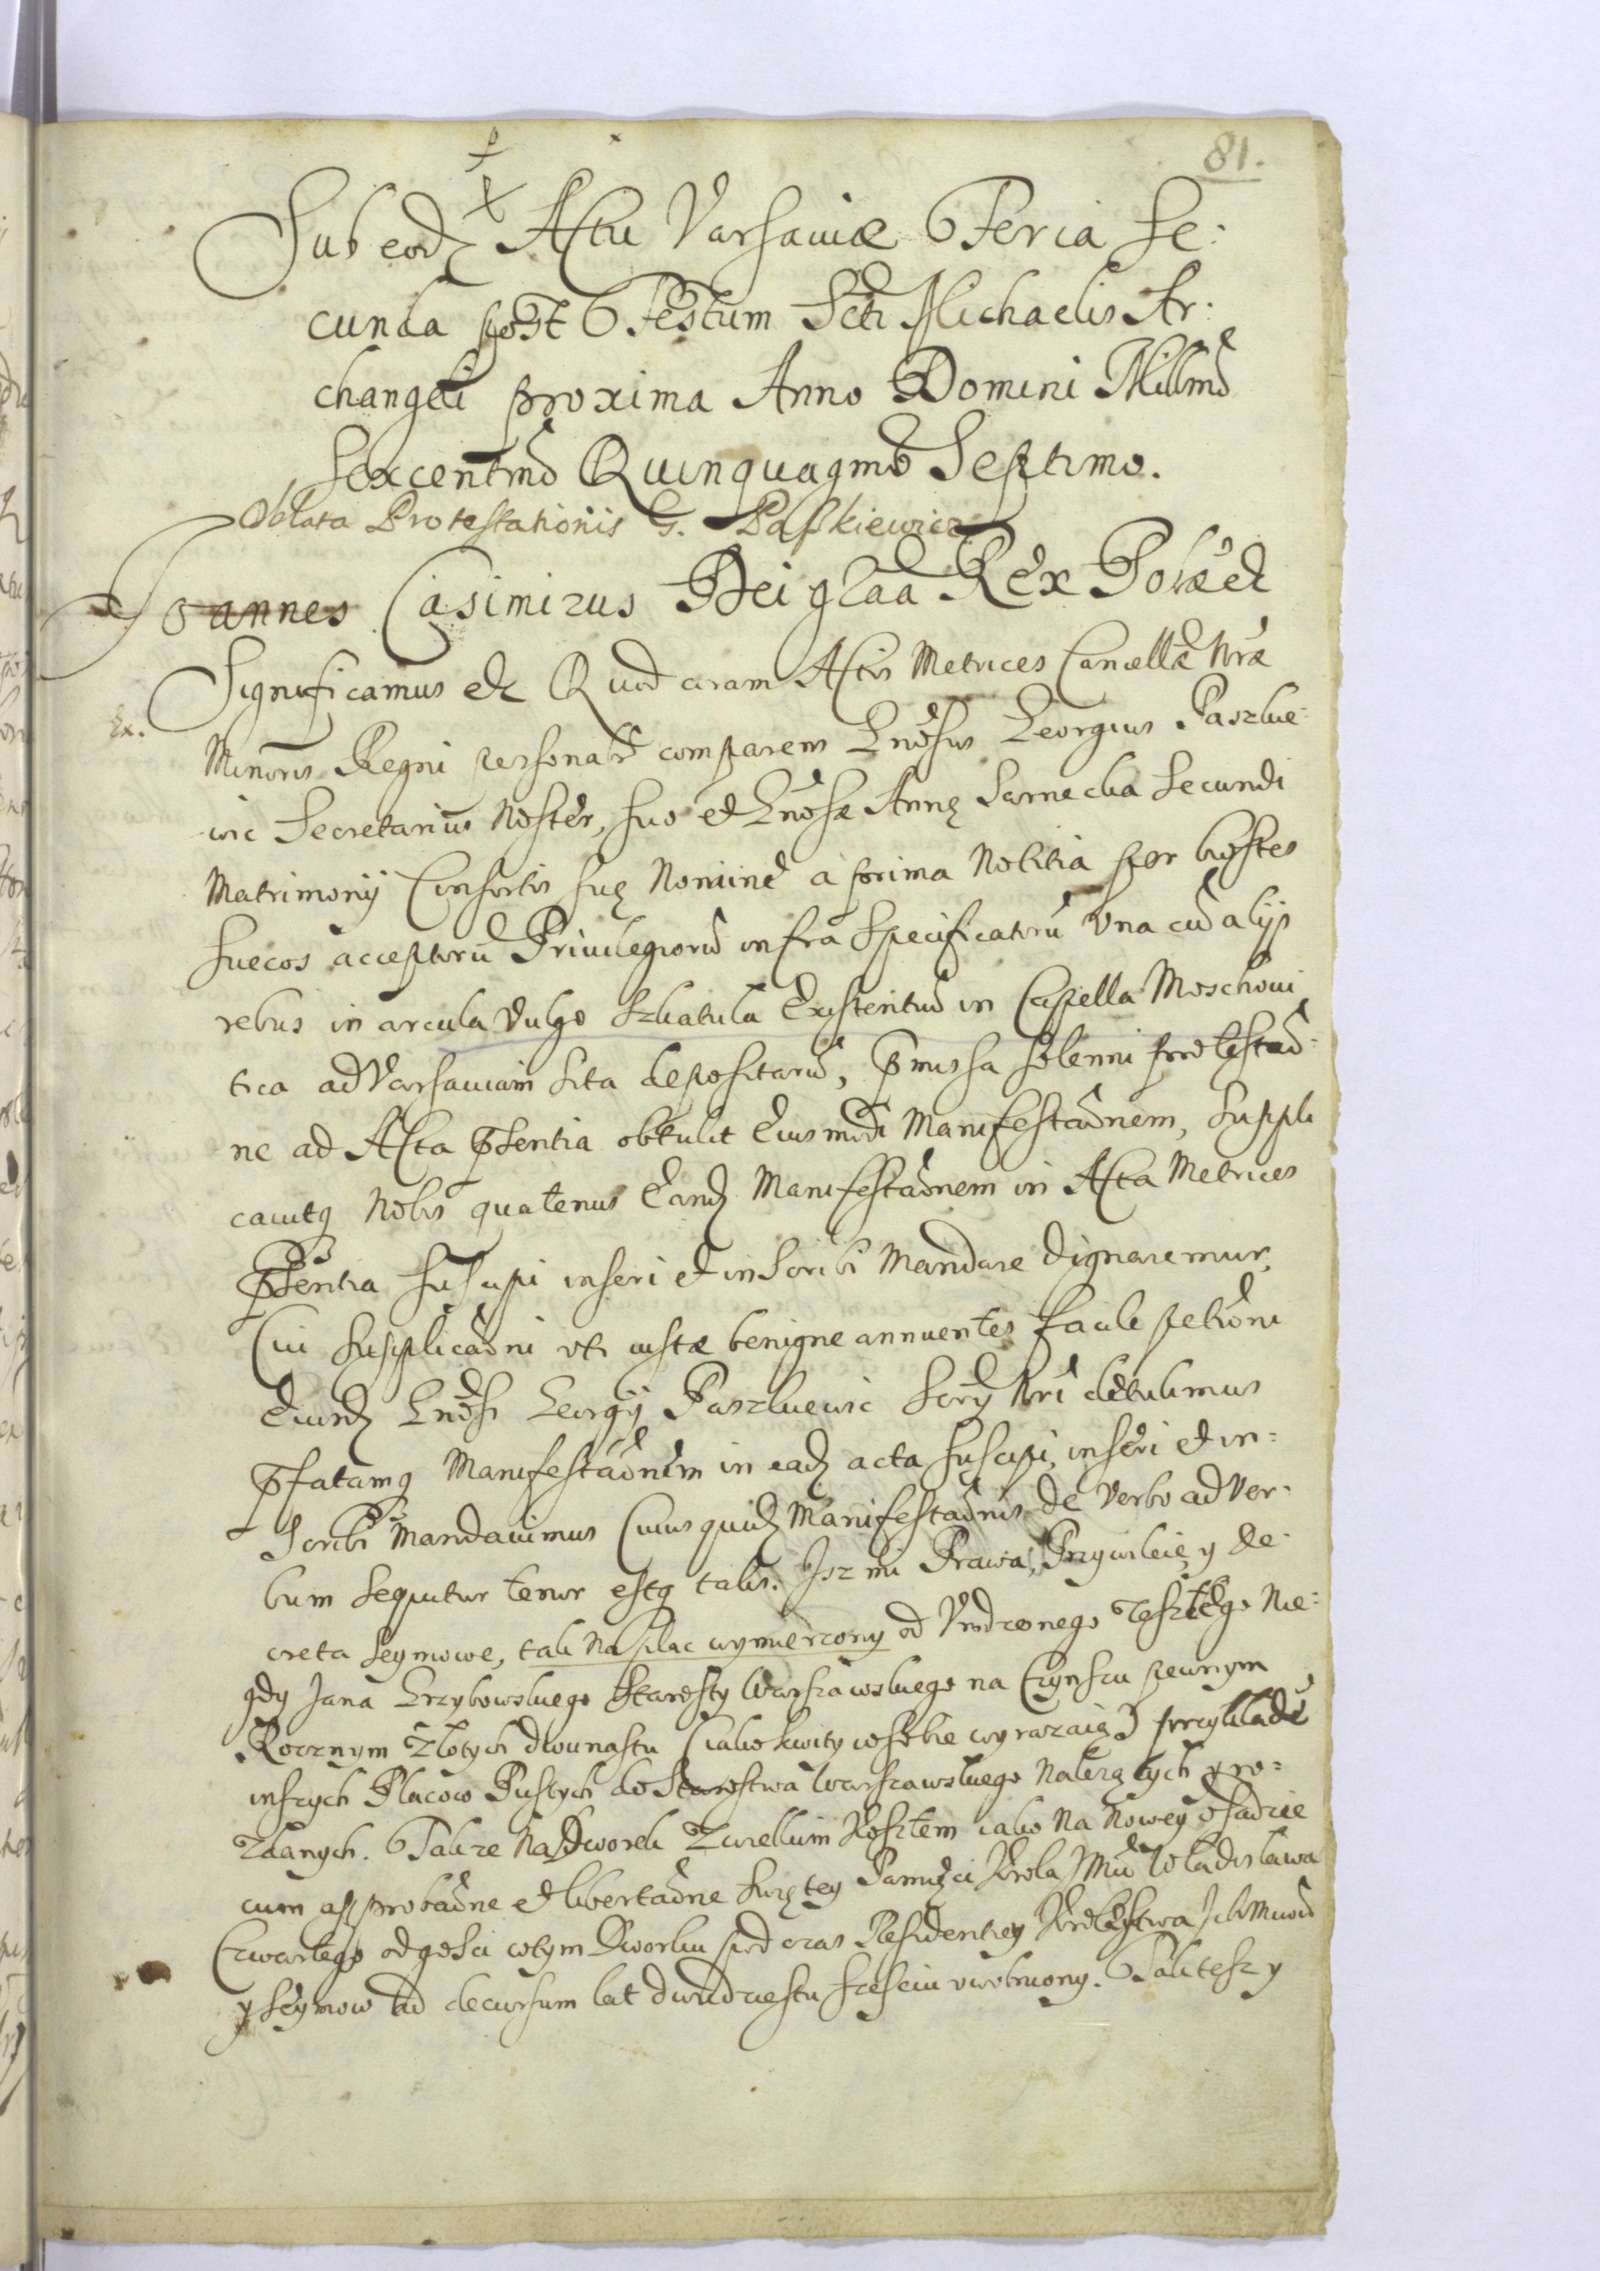 81.
Sub eodz Actu Varsaviæ Feria Se:
cunda post Festum Scti Michaelis Ar:
changeli proxima Anno Domini Millmo
Sexcentmo Quinquagmo Septimo.
Oblata Protestationis G. Paszkiewicz
Joannes Casimirus Dei graa Rex Polæ et
Significamus etc Quod coram Actis Metrices Cancellæ Nræ
Ex.
Minoris Regni personalr comparens Gnosus Georgius Paszkie:
wic Secretarius Noster, suo et Gnosæ Annę Sarnecka Secundi
Matrimonij Consortis suę Nomine a prima Notitia per hostes
Suecos acceptorū Privilegiorū infra Specificatorū Una cū alijs
rebus in arcula vulgo Szkatuła Existentiū in Capella Moschovi
tica ad Varsaviam sita depositarū, pmissa solenni protestao:
ne ad Acta pñtia obtulit Eiusmodi Manifestaonem, Suppli
cavitq Nobis quatenus Eandz Manifestaonem in Acta Metrices
pñtia suscipi inseri et inscribi Mandare dignaremur,
Cui Supplicaoni uti iustæ benigne annuentes facile petioni
Eiusdz Gnosi Georgij Paszkiewic Scry Nri detulimus
pfatamq Manifestaonem in eadz acta suscipi, inseri et in=
scribi Mandavimus Cuius quidz Manifestaonis de Verbo ad Ver:
bum sequitur tenor estq talis. Jsz mi Prawa, Przywileie y De:
creta Seymowe, tak Na Plac wymierzony od Vrodzonego Zeszłego Nie:
gdy Jana Grzybowskiego Starosty Warszawskiego na Czynszu pewnym
Rocznym Złotych dwunastu (iako kwity w sobie wyrazaią) przykładē
inszych Placow Pustych do Starostwa Warszawskiego Nalezących y ro=
zdanych. Takze Na Dworek Zwielkim Kosztem iako Na Nowey osadzie
cum approbaone et libertaone Swiętey Pamięci Krola JMći Władisława
Czwartego od gosci w tym Dworku pod czas Residentiey Krolestwa Ich Mciow
y Seymow ad decursum lat dwudziestu szesciu uwolniony. Tak tesz y